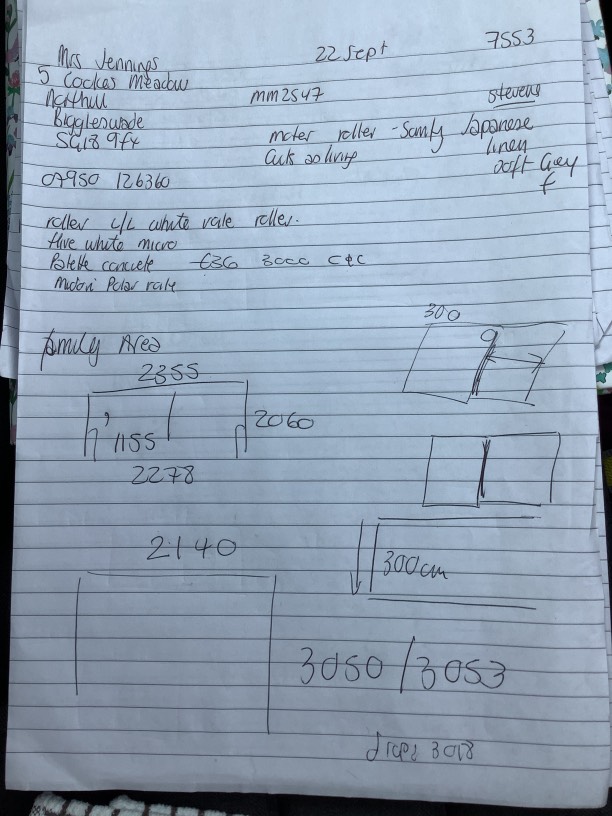 Mrs Jennings 22 Sept 7553
5 Cockas Meadow
Northill mm2547 Stevens
Biggleswade
SG18 9fx moter roller - Somfy Japanese
linen
07950 126360 Soft Grey
roller c/c white vale roller.
Hive white micro
Palette concrete £36 3000 C&C
Midori Polar vale
300
family Area
2355
1155 2060
2278
2140
300cm
3050/3053
drops 3018